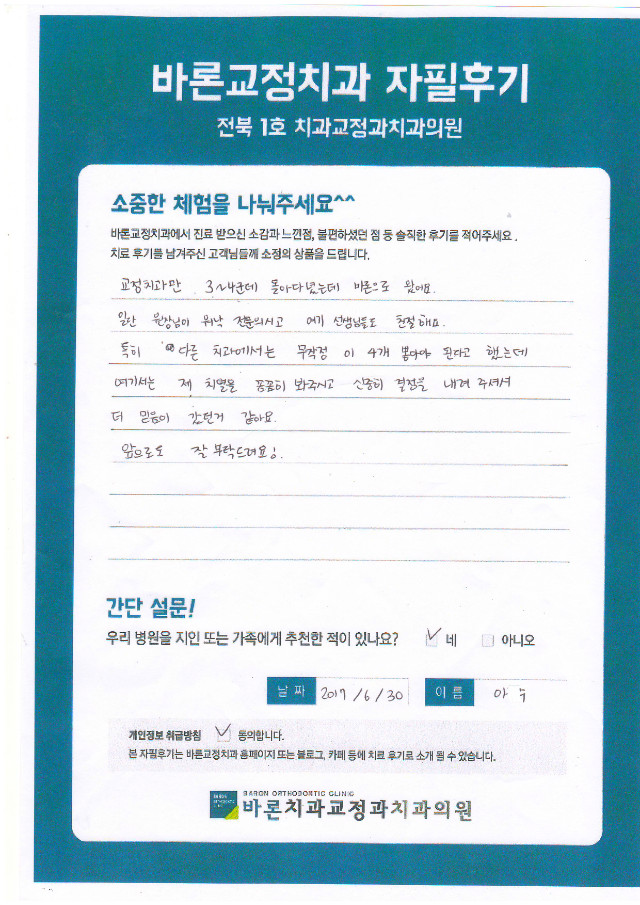 바론교정치과 자필후기
전북 1호 치과교정과치과의원
소중한 체험을 나눠주세요^^
바론교정치과에서 진료 받으신 소감과 느낀점, 불편하셨던 점 등 솔직한 후기를 적어주세요.
치료 후기를 남겨주신 고객님들께 소정의 상품을 드립니다.
교정치과만 3~4군데 돌아다녔는데 바론으로 왔어요.
일단 원장님이 워낙 전문의시고 여기 선생님들도 친절해요.
특히 다른 치과에서는 무작정 이 4개 뽑아야 된다고 했는데
여기서는 제 치열을 꼼꼼히 봐주시고 신중히 결정을 내려 주셔서
더 믿음이 갔던거 같아요.
앞으로도 잘 부탁드려요!
간단 설문!
우리 병원을 지인 또는 가족에게 추천한 적이 있나요? 네 아니오
날짜 2017/6/30 이름
개인정보 취급방침 동의합니다.
본 자필후기는 바론교정치과 홈페이지 또는 블로그, 카페 등에 치료 후기로 소개 될 수 있습니다.
BARON ORTHODONTIC CLINIC
바론치과교정과치과의원